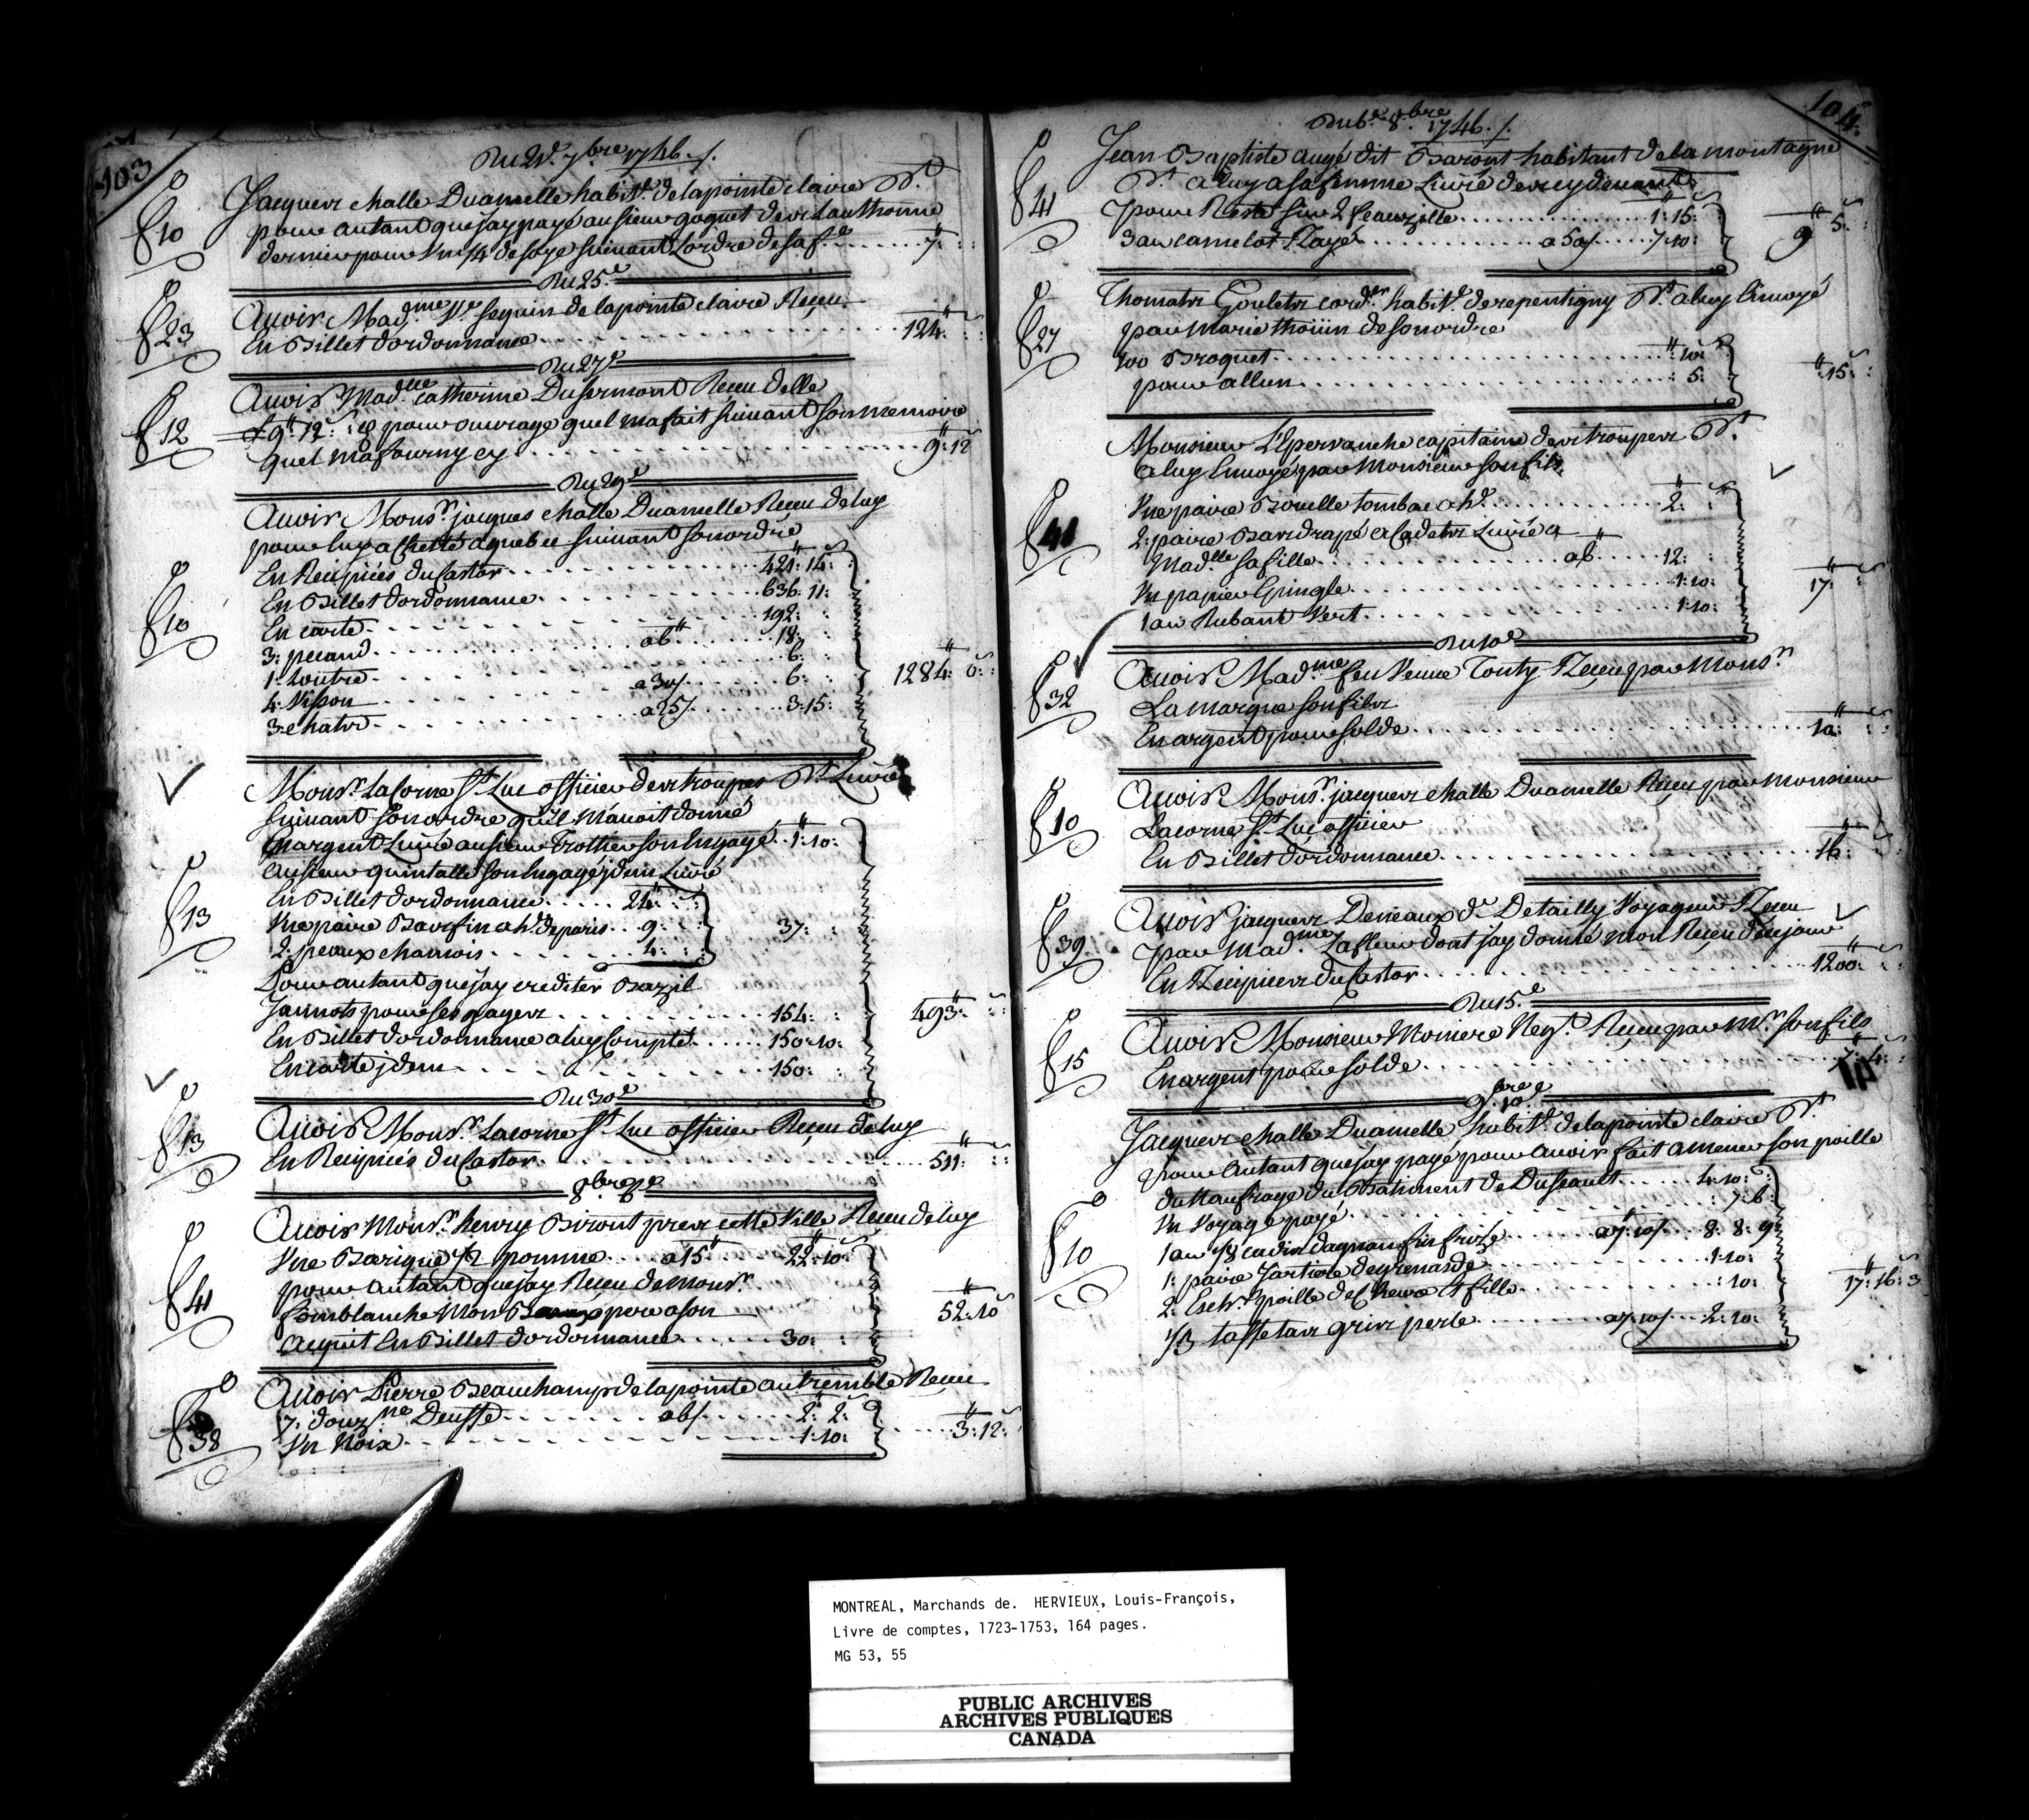 103
Du 21e 7bre 1746 ./.
fo 10
Jacques challe Duamelle habitt de la pointe claire Dt
pour autant que jay payé au sieur goguet des Lauthonne
dernier pour Vn 1/4 de soye suivant Lordre de saf e ........ 7" : :
Du 25e
fo 23
Avoir Madme Ve seguin de la pointe claire Receu
En Billet dordonnance ........ 124" : :
Du 27e
fo 12
Avoir Madlle catherine Dufermont Receu delle
9" 12s : & pour ouvrage quel ma fait suivant son memoire
quel ma fourny cy ........ 9" : 12
Du 29e
fo 10
Avoir Monsr jacques challe Duamelle Receu de luy
pour luy achetté a quebec suivant son ordre
En Recipicés du Castor ........ 421" : 14 :
En Billet dordonnance ........ 636 : 11 :
En carte ........ 192 :
3 : pecand ........ a 6" ........ 18 :
1 : Loutre ........ 6 :
4 : Visson ........ a 30/ ........ 6 :
3 : chats ........ a 25/ ........ 3 : 15 :
1284" : 0 :
fo 13
Monsr LaCorne St Luc officier des troupes Dt Livré
suivant son ordre quil m'avoit donné
En argent Livré au sieur Trottier son Engagé .. 1" : 10 :
au sieur quintalle son Engagé jdem Livré
En Billet dordonnance ..... 24" : :
Vne paire Bas fin a h. de paris .. 9 : :
2 : peaux chamois ...... 4 : :
37 :
Pour autant que jay crediter Bazil
Jannots pour ses gages ........ 154 :
En Billet dordonnance a luy Compté ..... 150 : 10 :
En carte jdem ........ 150 :
493" : :
Du 30e
fo 13
Avoir Monsr Lacorne St Luc officier Receu de luy
En Recipicés du Castor ........ 511" : :
8bre
fo 41
Avoir Monsr henry Biront pres cette Ville Receu de luy
Vne Barique 1/2 pomme .... a 15" ..... 22" : 10s
pour autant que jay Receu de monsr
sur mon
acquit En Billet dordonnance ...... 30 :
52" : 10s
fo 38
Avoir Pierre Beauchamps de la pointe au tremble Receu
7 : douzne Deuffe ........ a 6/ ........ 2" : 2s
Vn Noix ........ 1 : 10 :
3" : 12 :
104
Du 6e 8bre 1746 ./.
fo 41
Jean Baptiste augé dit Baront habitant de la montagne
Dt a luy a sa femme Livré devrey devant
pour Reste sur 2 ........ 1" : 15s
3 au camelot Rayé ........ a 50/ ..... 7 : 10 :
9" : 5s
fo 27
Thomas Goulets cordr habitt de repentigny Dt a luy Envoyé
par Marie thoüin de son ordre
400 Broquet ........ " : 10s
pour allun ........ : 5 :
" : 15s
fo 41
Monsieur L'Epervanche capitaine des troupes Dt
a luy Envoyé par Monsieur son fils
Vne paire Boucle tombac a h. ........ 2" : s
2 : paire Bas drapé a Cadets Livré a
Madlle sa fille ........ a 6" ..... 12 :
Vn papier Epingle ........ 1 : 10 :
1 au Rubant Vert ........ 1 : 10 :
17" : s
Du 10e
fo 32
Avoir Madme feu Veuve Tonty Receu par Monsr
La marque son fils
En argent pour solde ........ 10" : :
fo 10
Avoir Monsr jacques challe Duamelle Receu par Monsieur
Lacorne St Luc officier
En Billet dordonnance ........ 16" : :
fo 39
Avoir jacques Deneaux de Detailly Voyageur Receu
par Madme Lafleur dont jay donné mon Receu ce jour
En Recipices du Castor ........ 1200" : :
Du 15e
fo 15
Avoir Monsieur Moniere Negt Receu par Mr son fils
En argent pour solde ........ 7" : 4s
9bre 10e
fo 10
Jacques challe Duamelle habitt de la pointe claire Dt
pour autant que jay payé pour avoir fait amener son poille
du Naufrage du Batiment de Duseault ..... 4" : 10s
Vn Voyage payé ........ : 7 : 6 :
1 au 1/8 cadis dagnan fin frizé ..... a 7" : 10/ ... 8 : 8 : 9
1 : paire Jartiere de grenarde ........ 1 : 10 :
2 : Echt poille de Chevre Et fille ........ : 10 :
1/3 taffetas gris perle ........ a 7" : 10/ ... 2 : 10 :
17" : 16s : 3
MONTREAL, Marchands de. HERVIEUX, Louis-François,
Livre de comptes, 1723-1753, 164 pages.
MG 53, 55
PUBLIC ARCHIVES
ARCHIVES PUBLIQUES
CANADA